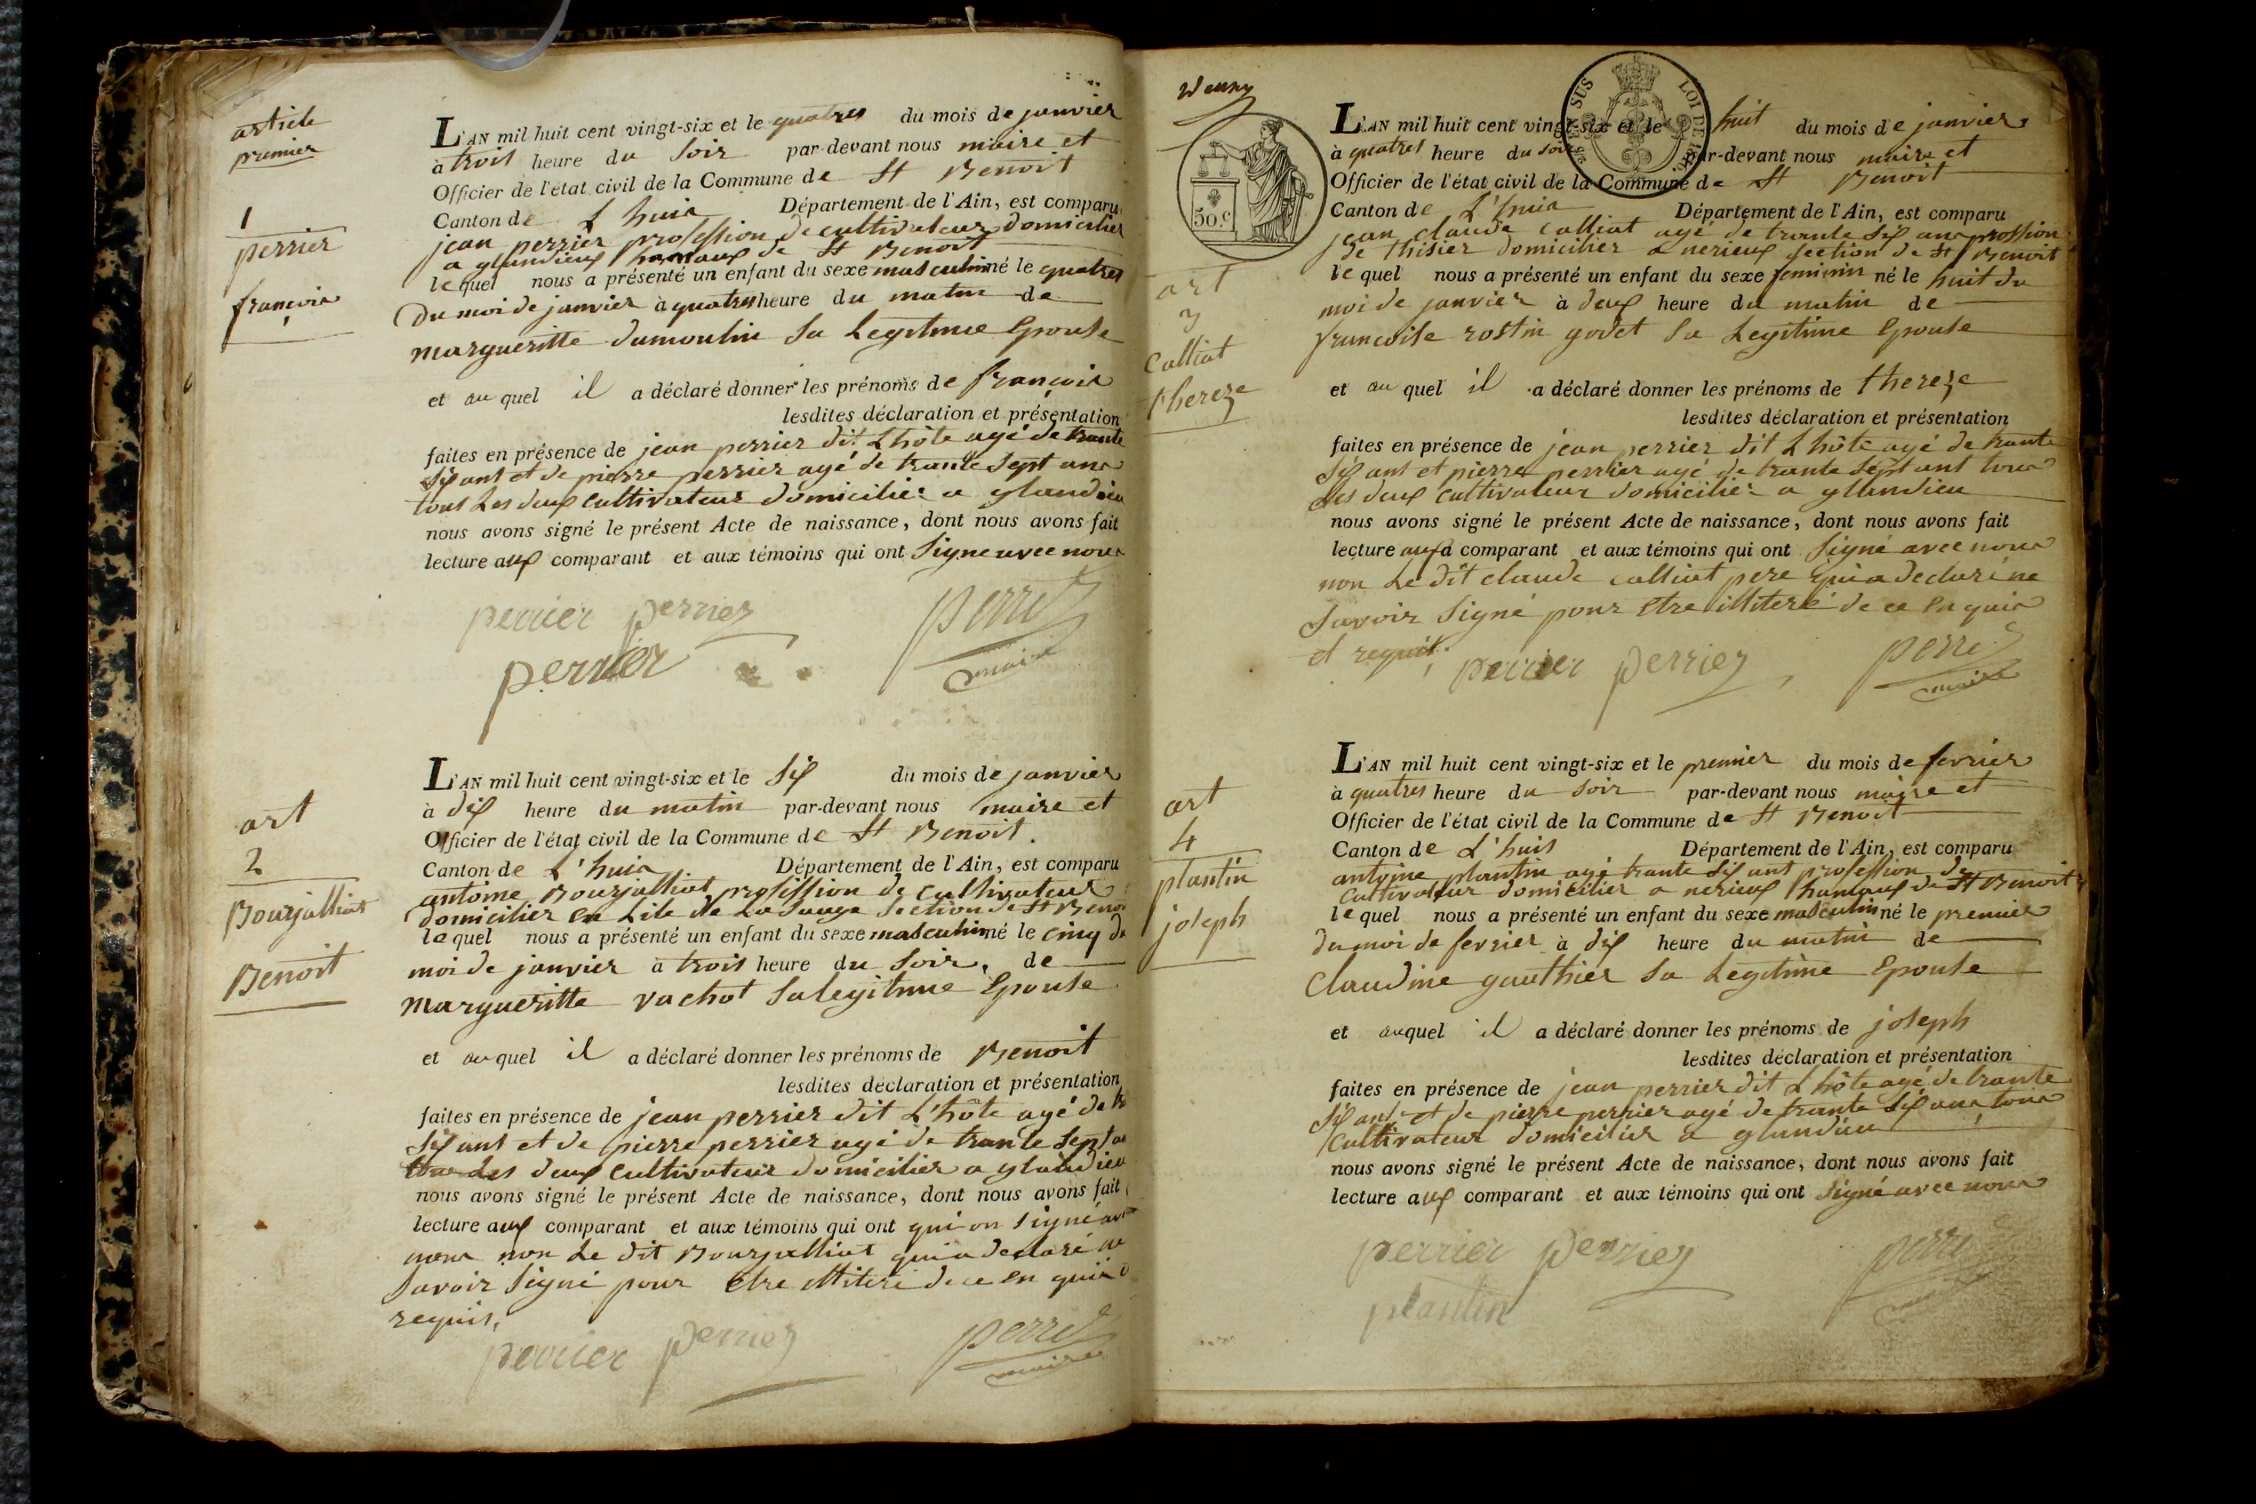 article
premier
1
perrier
françois
L'AN mil huit cent vingt-six et le quatres du mois de janvier
à trois heure du soir par-devant nous maire et
Officier de l'état civil de la Commune de St Benoit
Canton de L'huis Département de l'Ain, est comparu
jean perrier profession de cultivateur domicilier
a glandieux hamaux de St Benoit
lequel nous a présenté un enfant du sexe masculin né le quatres
du moi de janvier à quatres heure du matin de
margueritte dumoulin sa Legitime Epouse
et au quel il a déclaré donner les prénoms de françois
lesdites déclaration et présentation
faites en présence de jean perrier dit L'hôte agé de trante
six ans et de pierre perrier agé de trante sept ans
tous Les deux cultivateur domicilier a glandieu
nous avons signé le présent Acte de naissance, dont nous avons fait
lecture aux comparant et aux témoins qui ont signe avec nous
perrier perrier
perret
perrier
maire
art
2
Bourjalliat
Benoit
L'AN mil huit cent vingt-six et le six du mois de janvier
à dix heure du matin par-devant nous maire et
Officier de l'état civil de la Commune de St Benoit.
Canton de L'huis Département de l'Ain, est comparu
antoine Bourjalliat profission de cultivateur
domicilier en Lile de La Sauge Section de St Benoi
lequel nous a présenté un enfant du sexe masculin né le cinq du
moi de janvier à trois heure du soir, de
margueritte vachot sa legitime Epouse
et au quel il a déclaré donner les prénoms de Benoit
lesdites déclaration et présentation
faites en présence de jean perrier dit L'hôte agé de tr
six ans et de pierre perrier agé de trante sept an
tous Les deux cultivateur domicilier a glandieu
nous avons signé le présent Acte de naissance, dont nous avons fait
lecture aux comparant et aux témoins qui ont qui on signé avec
nous non Le dit Bourjalliat qui a declaré ne
savoir signé pour Etre illiteré de ce en quis
requis,
perrier perrier
perret
maire
50.c
SUS LOI DE 18
L'AN mil huit cent vingt-six et le huit du mois de janvier
à quatres heure du soir par-devant nous maire et
Officier de l'état civil de la Commune de St Benoit
Canton de L'huis Département de l'Ain, est comparu
jean claude calliat agé de trante six ans profssion
de thisier domicilier a nerieux section de St Benoit
lequel nous a présenté un enfant du sexe feminin né le huit du
moi de janvier à deux heure du matin de
francoise rostin godet sa Legitime Epouse
et au quel il a déclaré donner les prénoms de thereze
lesdites déclaration et présentation
faites en présence de jean perrier dit L'hôte agé de trante
six ans et pierre perrier agé de trante sept ans tous
Les deux cultivateur domicilier a glandieu
nous avons signé le présent Acte de naissance, dont nous avons fait
lecture aux comparant et aux témoins qui ont signé avec nous
non Le dit claude calliat pere qui a declaré ne
savoir signé pour Etre illiteré de ce en quis
et requis.
perrier perrier
perret
maire
art
3
Calliat
thereze
L'AN mil huit cent vingt-six et le premier du mois de fevrier
à quatres heure du soir par-devant nous maire et
Officier de l'état civil de la Commune de St Benoit
Canton de L'huis Département de l'Ain, est comparu
antoine plantin agé trante six ans profession de
cultivateur domicilier a nerieux hamaux de St Benoit
lequel nous a présenté un enfant du sexe masculin né le premier
du moi de fevrier à dix heure du matin de
Claudine gauthier sa Legitime Epouse
et auquel il a déclaré donner les prénoms de joseph
lesdites déclaration et présentation
faites en présence de jean perrier dit L'hôte agé de trante
six ans et de pierre perrier agé de trante six ans tous
cultivateur domicilier a glandieu
nous avons signé le présent Acte de naissance, dont nous avons fait
lecture aux comparant et aux témoins qui ont signé avec nous
perrier perrier
perret
plantin
maire
art
4
plantin
joseph